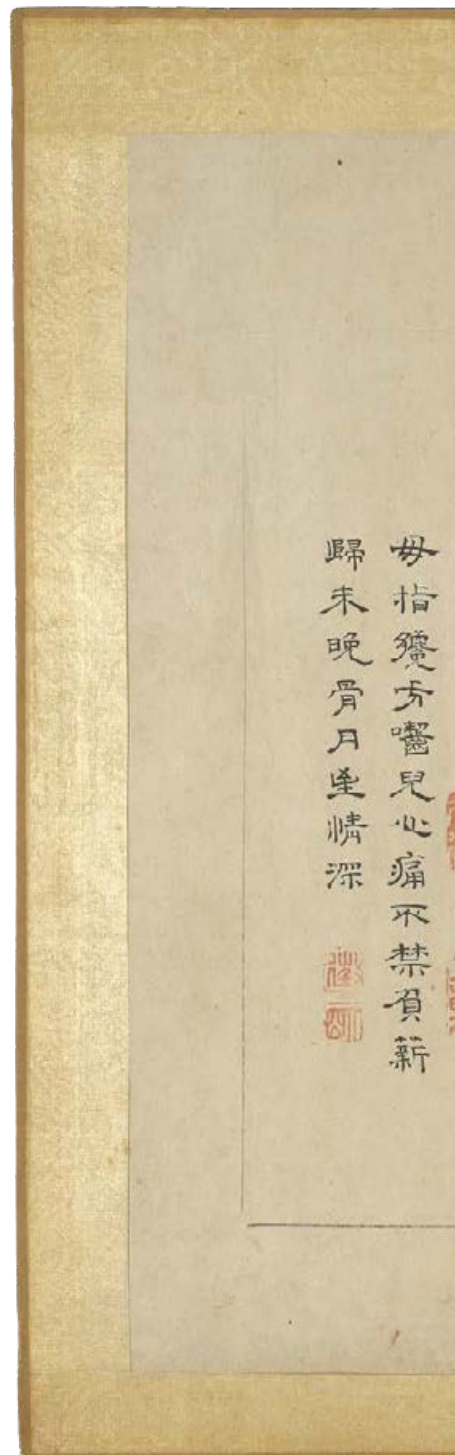 母指纔方嚙兒心痛不禁負薪
歸未晚骨肉至情深
徵明